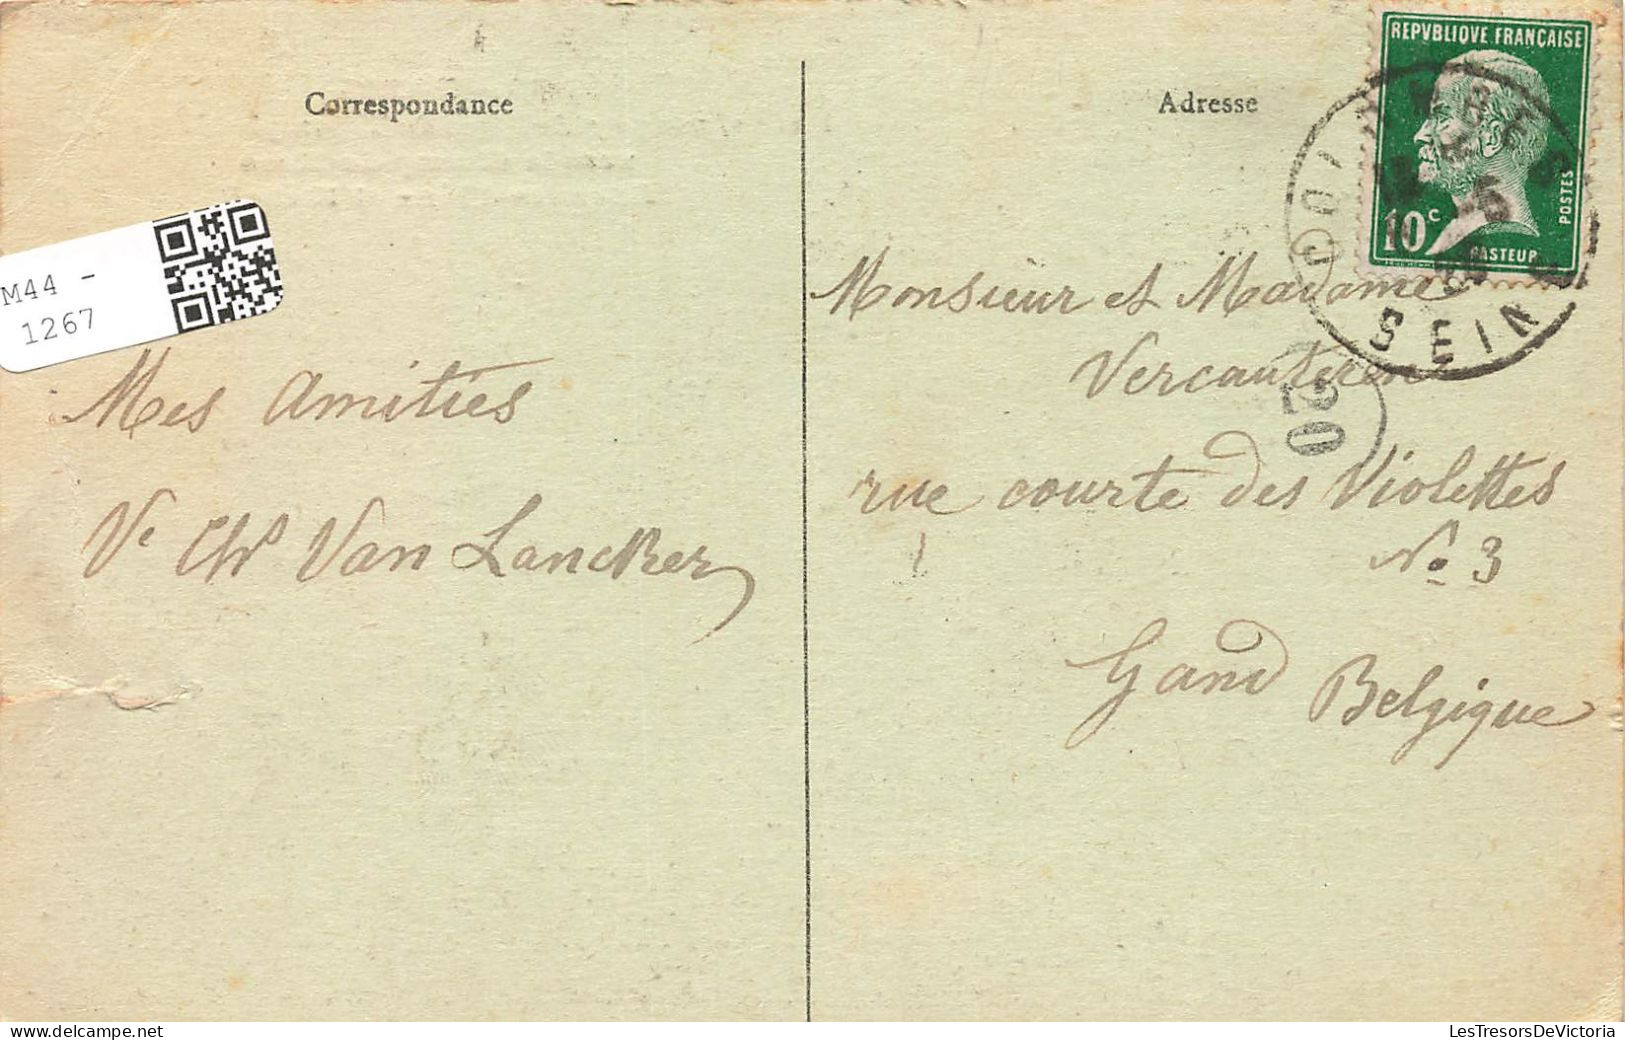 Correspondance
Adresse
REPVBLIQVE FRANÇAISE
10c
POSTES
PASTEUR
SEINE
M44 -
1267
Mes Amitiés
Ve Chs Van Lancker
Monsieur et Madame
Vercauteren
rue courte des Violettes
No 3
Gand Belgique
20
LesTresorsDeVictoria